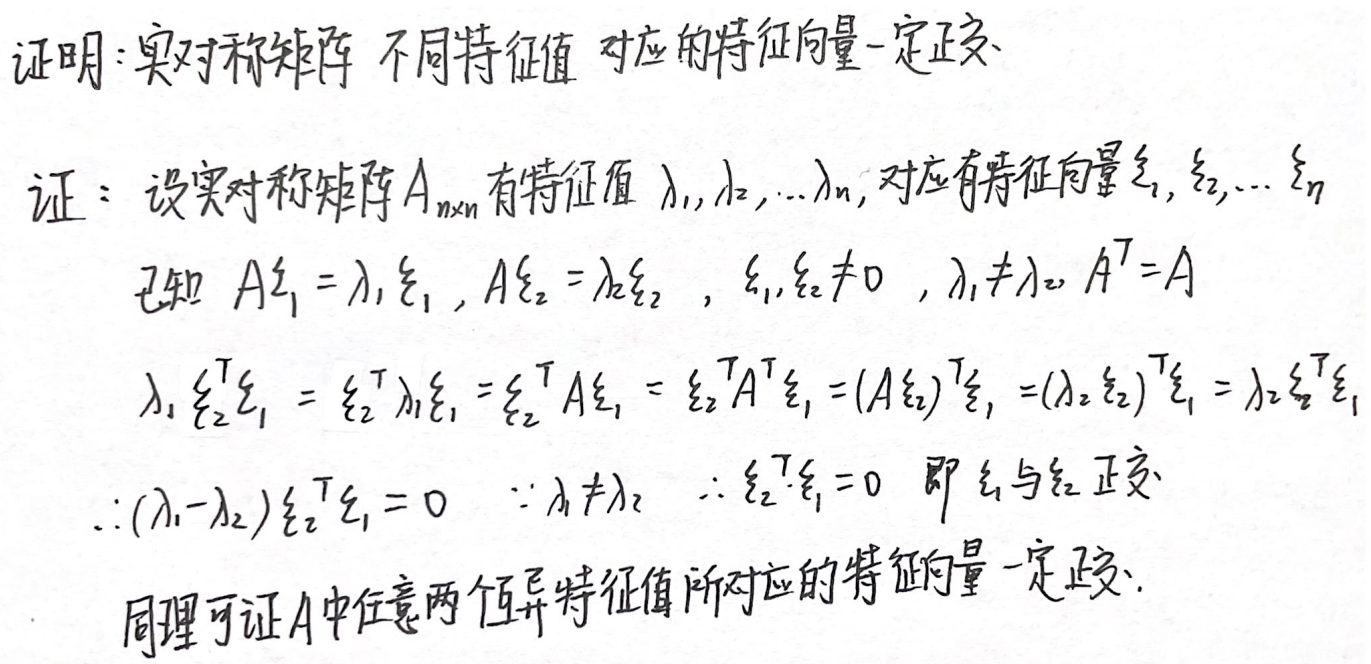 证明:实对称矩阵 不同特征值 对应的特征向量一定正交.
证: 设实对称矩阵Aₙₓₙ有特征值 λ₁,λ₂,…λₙ, 对应有特征向量ξ₁, ξ₂,… ξₙ
已知 Aξ₁ = λ₁ξ₁, Aξ₂ = λ₂ξ₂, ξ₁,ξ₂≠0, λ₁≠λ₂, Aᵀ=A
λ₁ξ₂ᵀξ₁ = ξ₂ᵀλ₁ξ₁ = ξ₂ᵀAξ₁ = ξ₂ᵀAᵀξ₁ = (Aξ₂)ᵀξ₁ = (λ₂ξ₂)ᵀξ₁ = λ₂ξ₂ᵀξ₁
∴(λ₁-λ₂)ξ₂ᵀξ₁ = 0 ∵λ₁≠λ₂ ∴ξ₂ᵀ·ξ₁=0 即 ξ₁与ξ₂ 正交.
同理可证A中任意两个互异特征值所对应的特征向量一定正交.